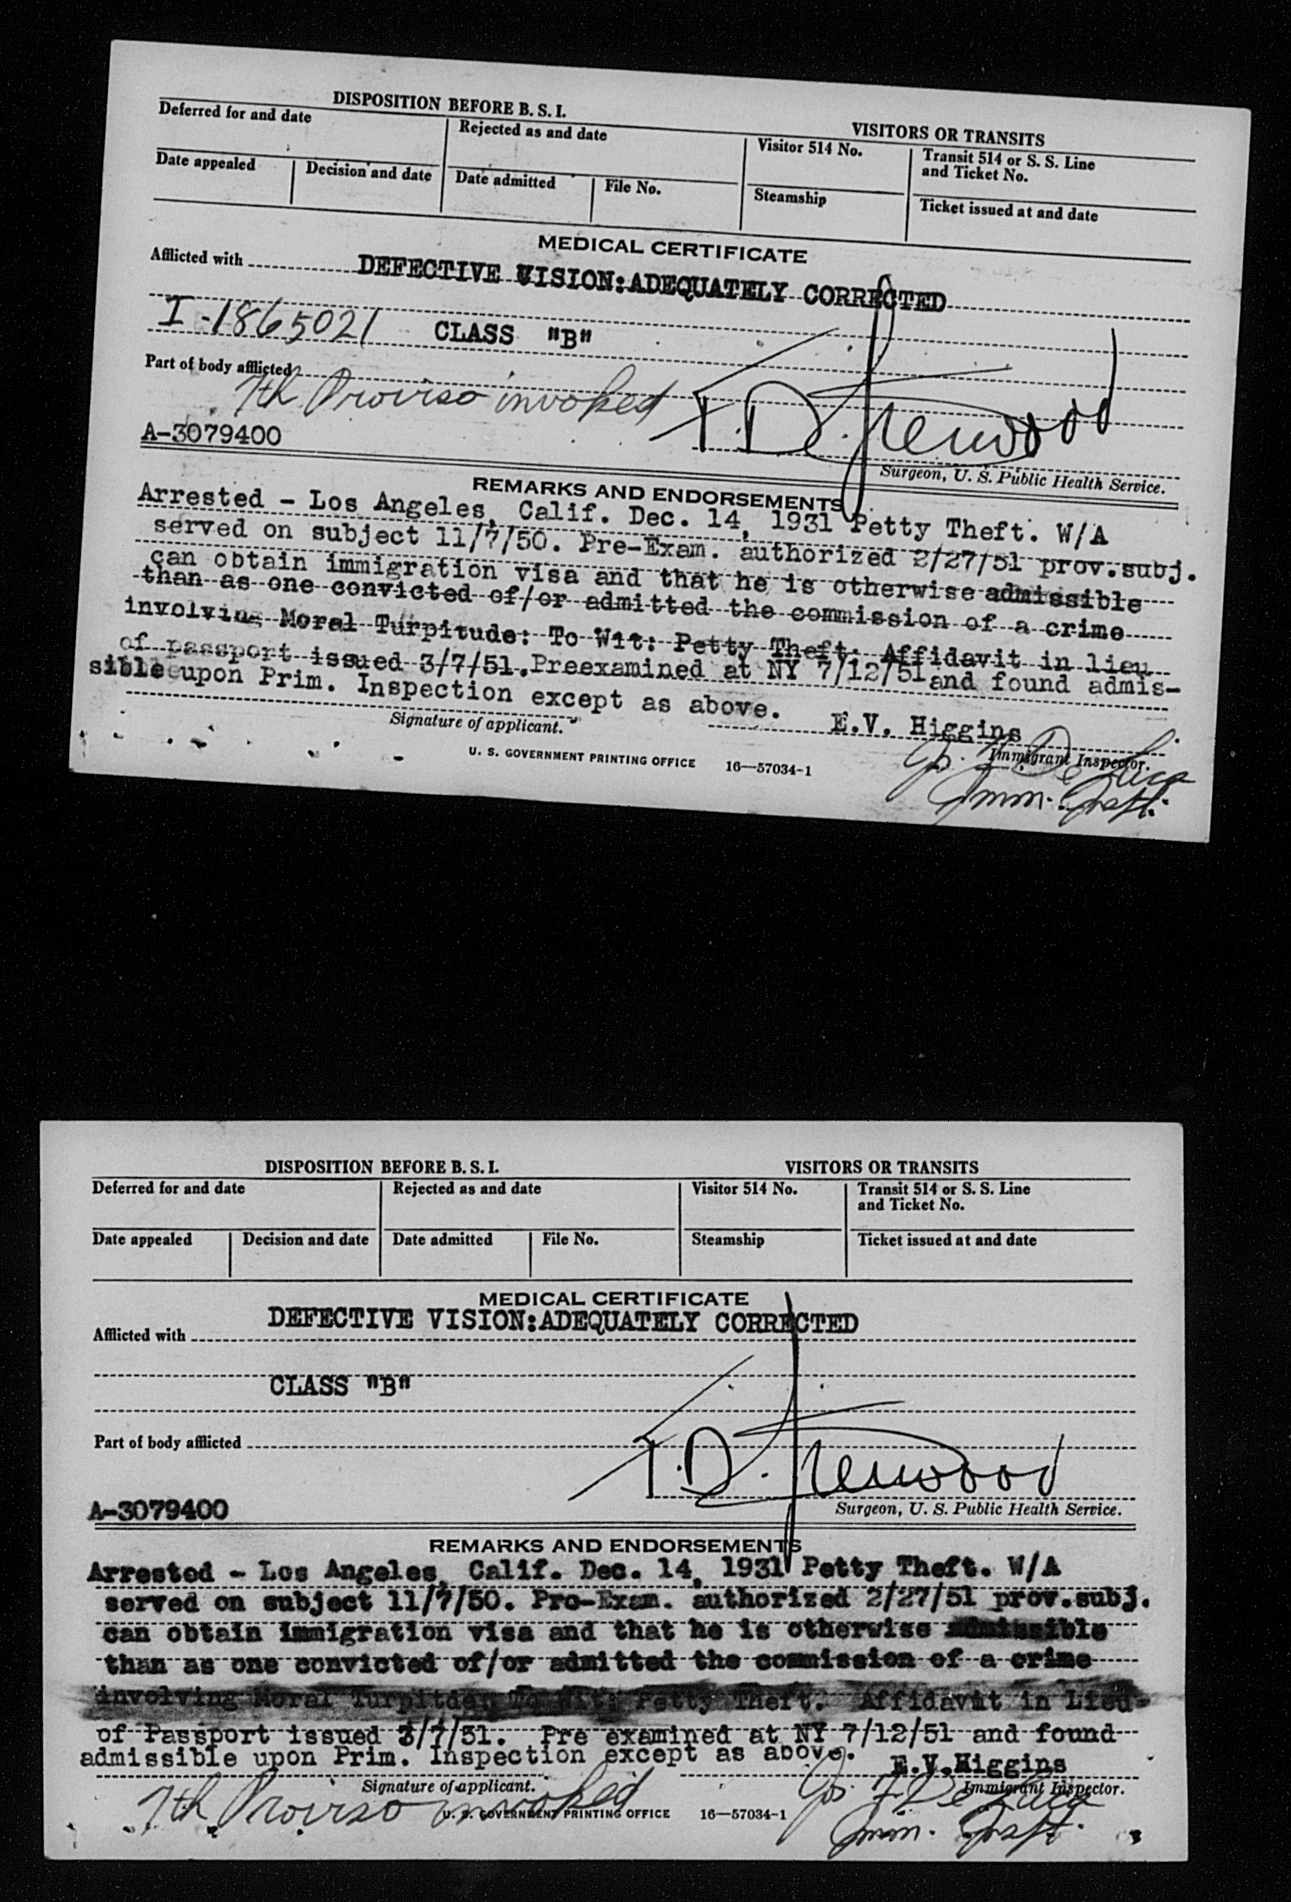 DISPOSITION BEFORE B. S. I.
VISITORS OR TRANSITS
Deferred for and date
Rejected as and date
Visitor 514 No.
Transit 514 or S. S. Line
and Ticket No.
Date appealed
Decision and date
Date admitted
File No.
Steamship
Ticket issued at and date
MEDICAL CERTIFICATE
Afflicted with DEFECTIVE VISION:ADEQUATELY CORRECTED
I-1865021 CLASS "B"
Part of body afflicted
7th Proviso invoked
A-3079400
Surgeon, U. S. Public Health Service.
REMARKS AND ENDORSEMENTS
Arrested - Los Angeles, Calif. Dec. 14, 1931 Petty Theft. W/A
served on subject 11/7/50. Pre-Exam. authorized 2/27/51 prov.subj.
can obtain immigration visa and that he is otherwise admissible
than as one convicted of/or admitted the commission of a crime
involving Moral Turpitude: To Wit: Petty Theft. Affidavit in lieu
of passport issued 3/7/51. Preexamined at NY 7/12/51 and found admis-
sible upon Prim. Inspection except as above.
E.V. Higgins
Signature of applicant.
Immigrant Inspector.
U. S. GOVERNMENT PRINTING OFFICE 16—57034-1
Imm. Inspt.
DISPOSITION BEFORE B. S. I.
VISITORS OR TRANSITS
Deferred for and date
Rejected as and date
Visitor 514 No.
Transit 514 or S. S. Line
and Ticket No.
Date appealed
Decision and date
Date admitted
File No.
Steamship
Ticket issued at and date
MEDICAL CERTIFICATE
Afflicted with DEFECTIVE VISION:ADEQUATELY CORRECTED
CLASS "B"
Part of body afflicted
A-3079400
Surgeon, U. S. Public Health Service.
REMARKS AND ENDORSEMENTS
Arrested - Los Angeles, Calif. Dec. 14, 1931 Petty Theft. W/A
served on subject 11/7/50. Pre-Exam. authorized 2/27/51 prov.subj.
can obtain immigration visa and that he is otherwise admissible
than as one convicted of/or admitted the commission of a crime
involving Moral Turpitde: To Wit: Petty Theft. Affidavit in Lieu
of Passport issued 3/7/51. Pre examined at NY 7/12/51 and found
admissible upon Prim. Inspection except as above.
E.V.Higgins
Signature of applicant.
Immigrant Inspector.
7th Proviso invoked
U. S. GOVERNMENT PRINTING OFFICE 16—57034-1
Imm. Inspt.